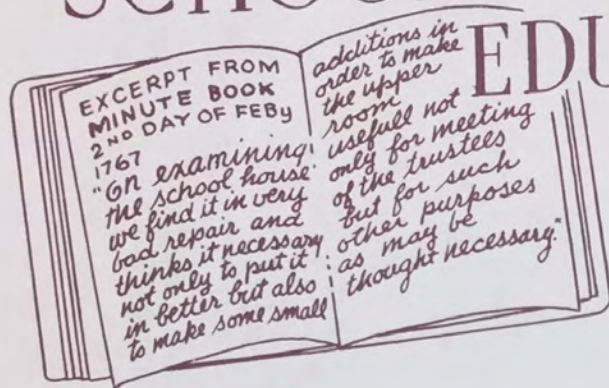 EXCERPT FROM
MINUTE BOOK
2ND DAY OF FEBy
1767
"On examining
the school house
we find it in very
bad repair and
thinks it necessary
not only to put it
in better but also
to make some small
additions in
order to make
the upper
room
usefull not
only for meeting
of the trustees
but for such
other purposes
as may be
thought necessary."